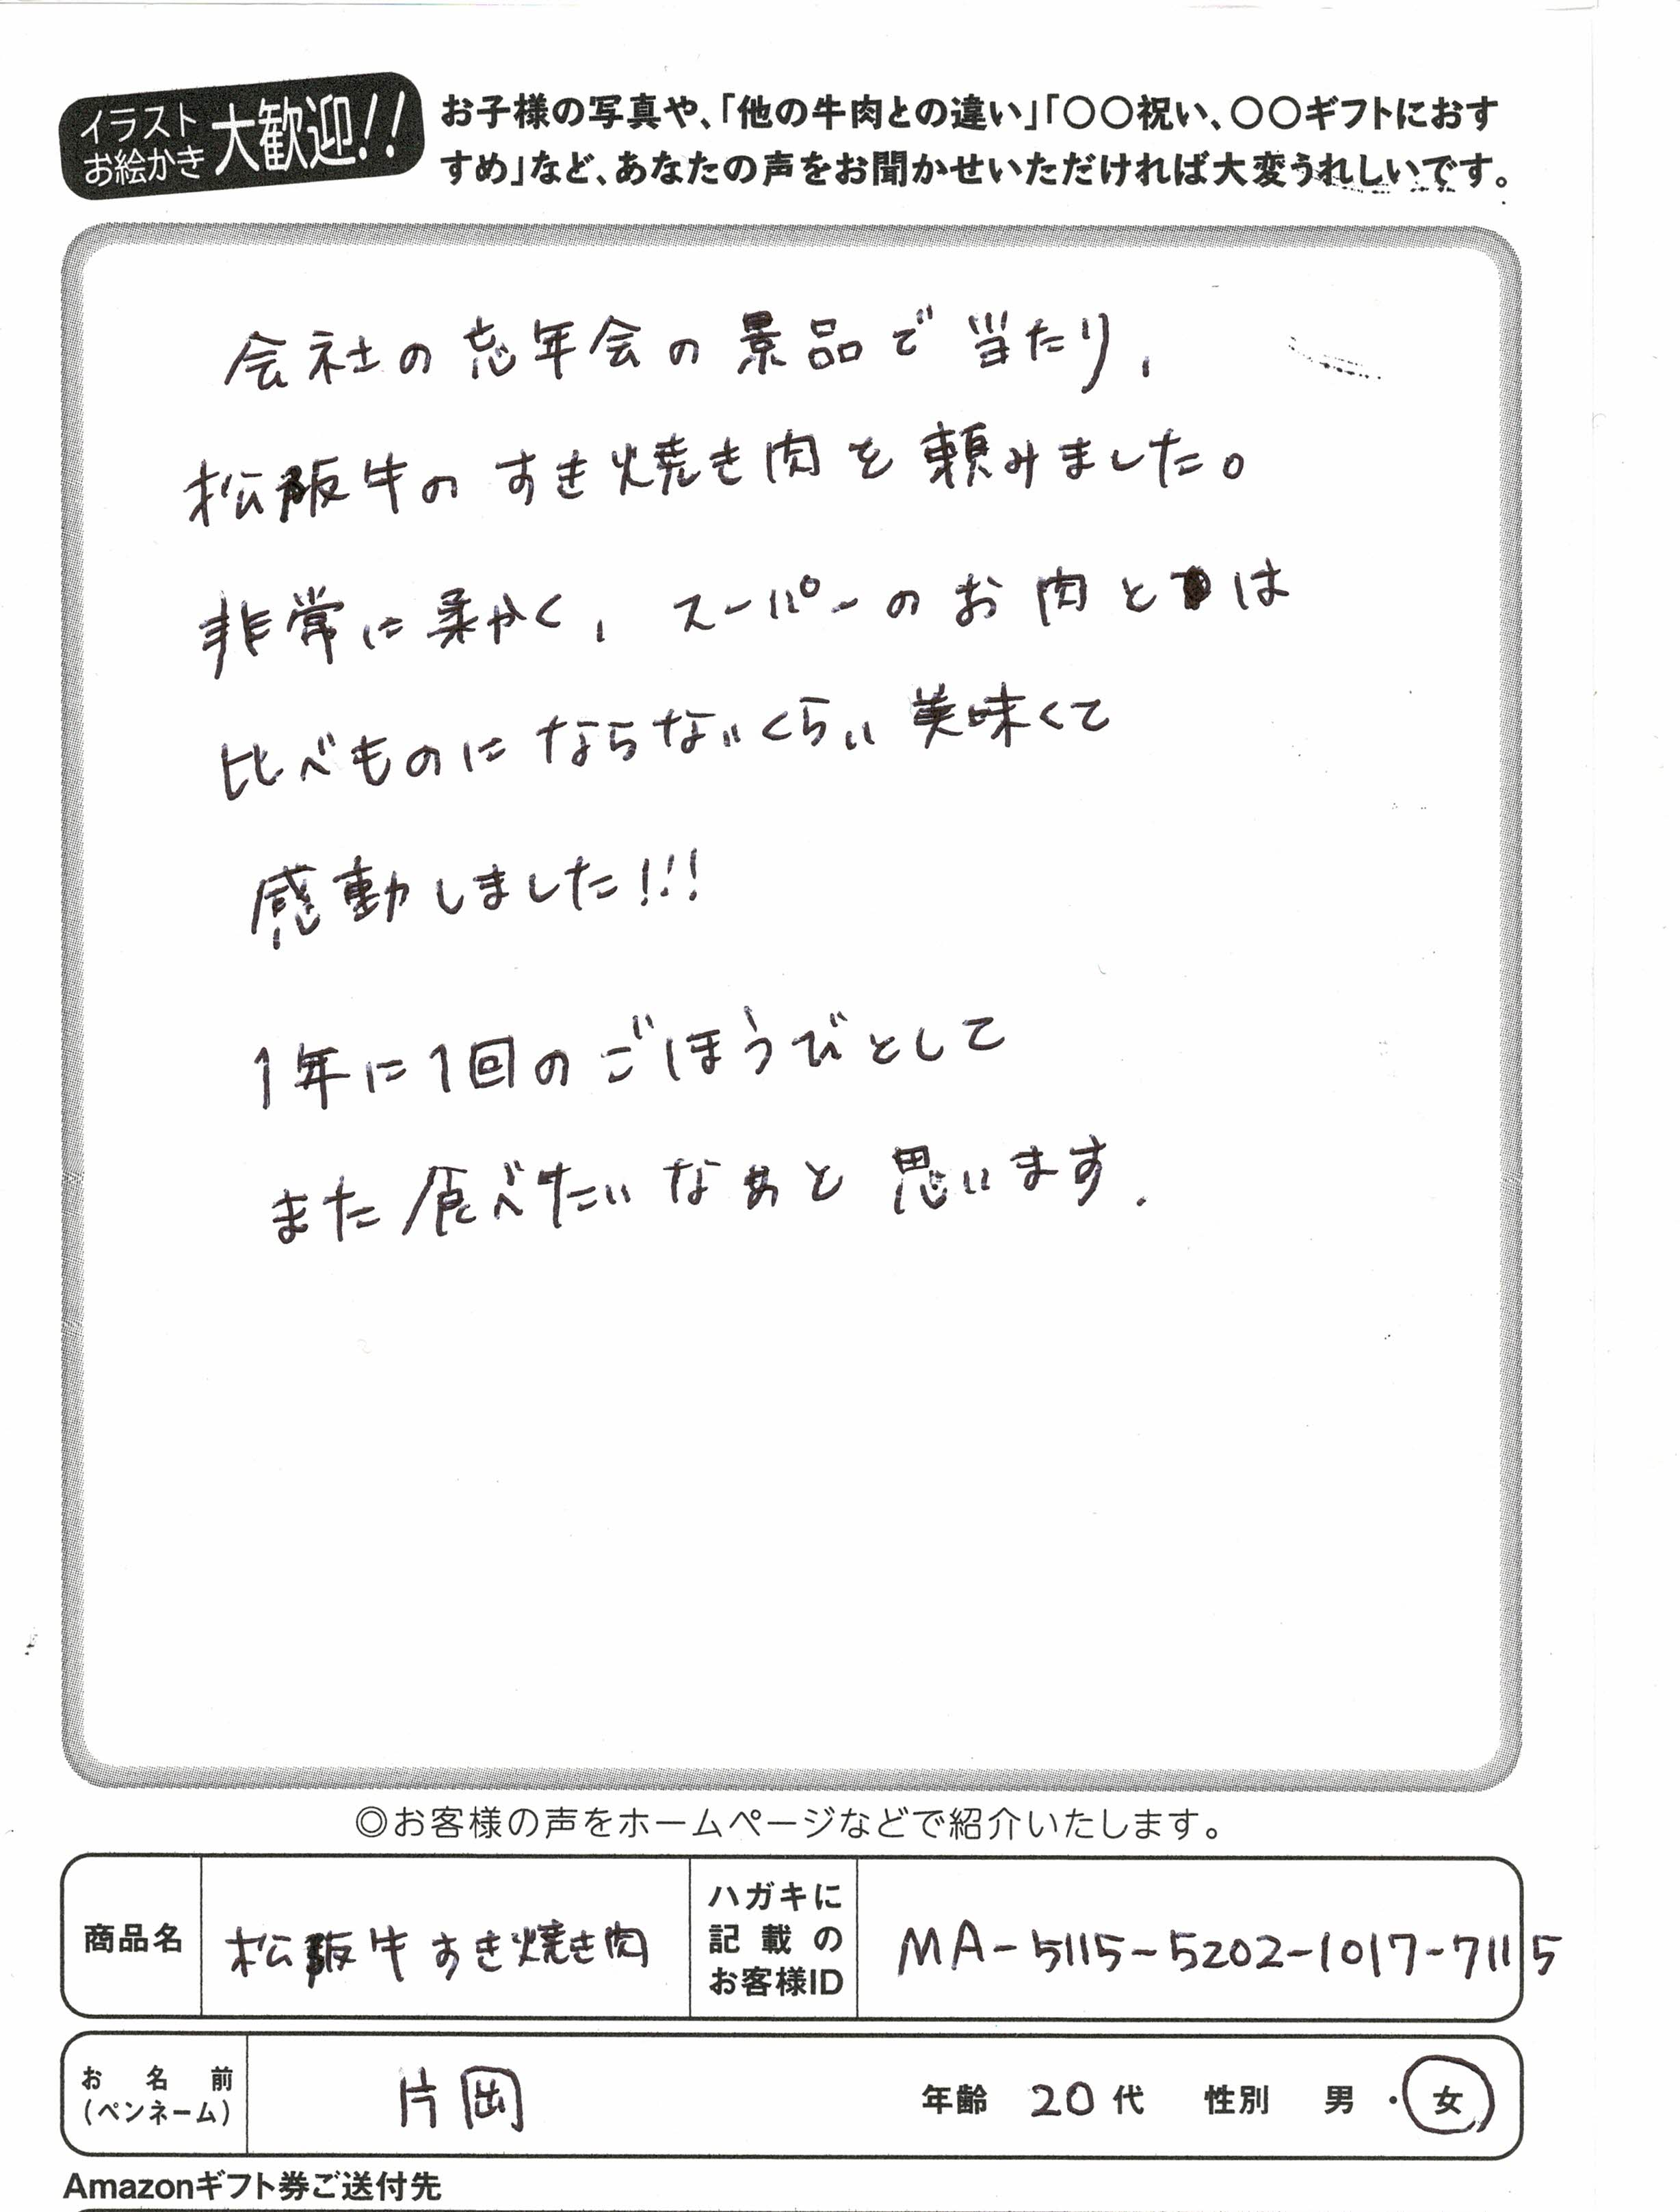 イラスト
お絵かき
大歓迎!!
お子様の写真や、「他の牛肉との違い」「〇〇祝い、〇〇ギフトにおす
すめ」など、あなたの声をお聞かせいただければ大変うれしいです。
会社の忘年会の景品で当たり、
松阪牛のすき焼き肉を頼みました。
非常に柔かく、スーパーのお肉とは
比べものにならないくらい美味くて
感動しました!!!
1年に1回のごほうびとして
また食べたいなぁと思います.
◎お客様の声をホームページなどで紹介いたします。
商品名
松阪牛すき焼き肉
ハガキに
記載の
お客様ID
MA-5115-5202-1017-7115
お名前
(ペンネーム)
片岡
年齢 20代 性別 男・女
Amazonギフト券ご送付先